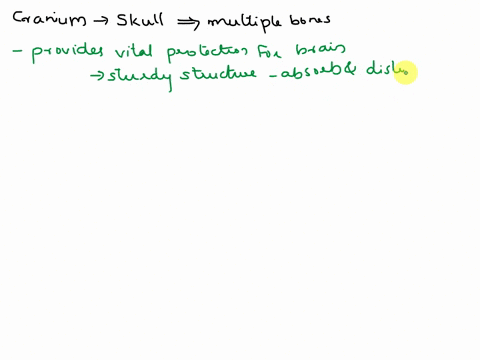 Cranium → Skull ⇒ multiple bones
- provides vital protection for brain
→ sturdy structure - absorb &